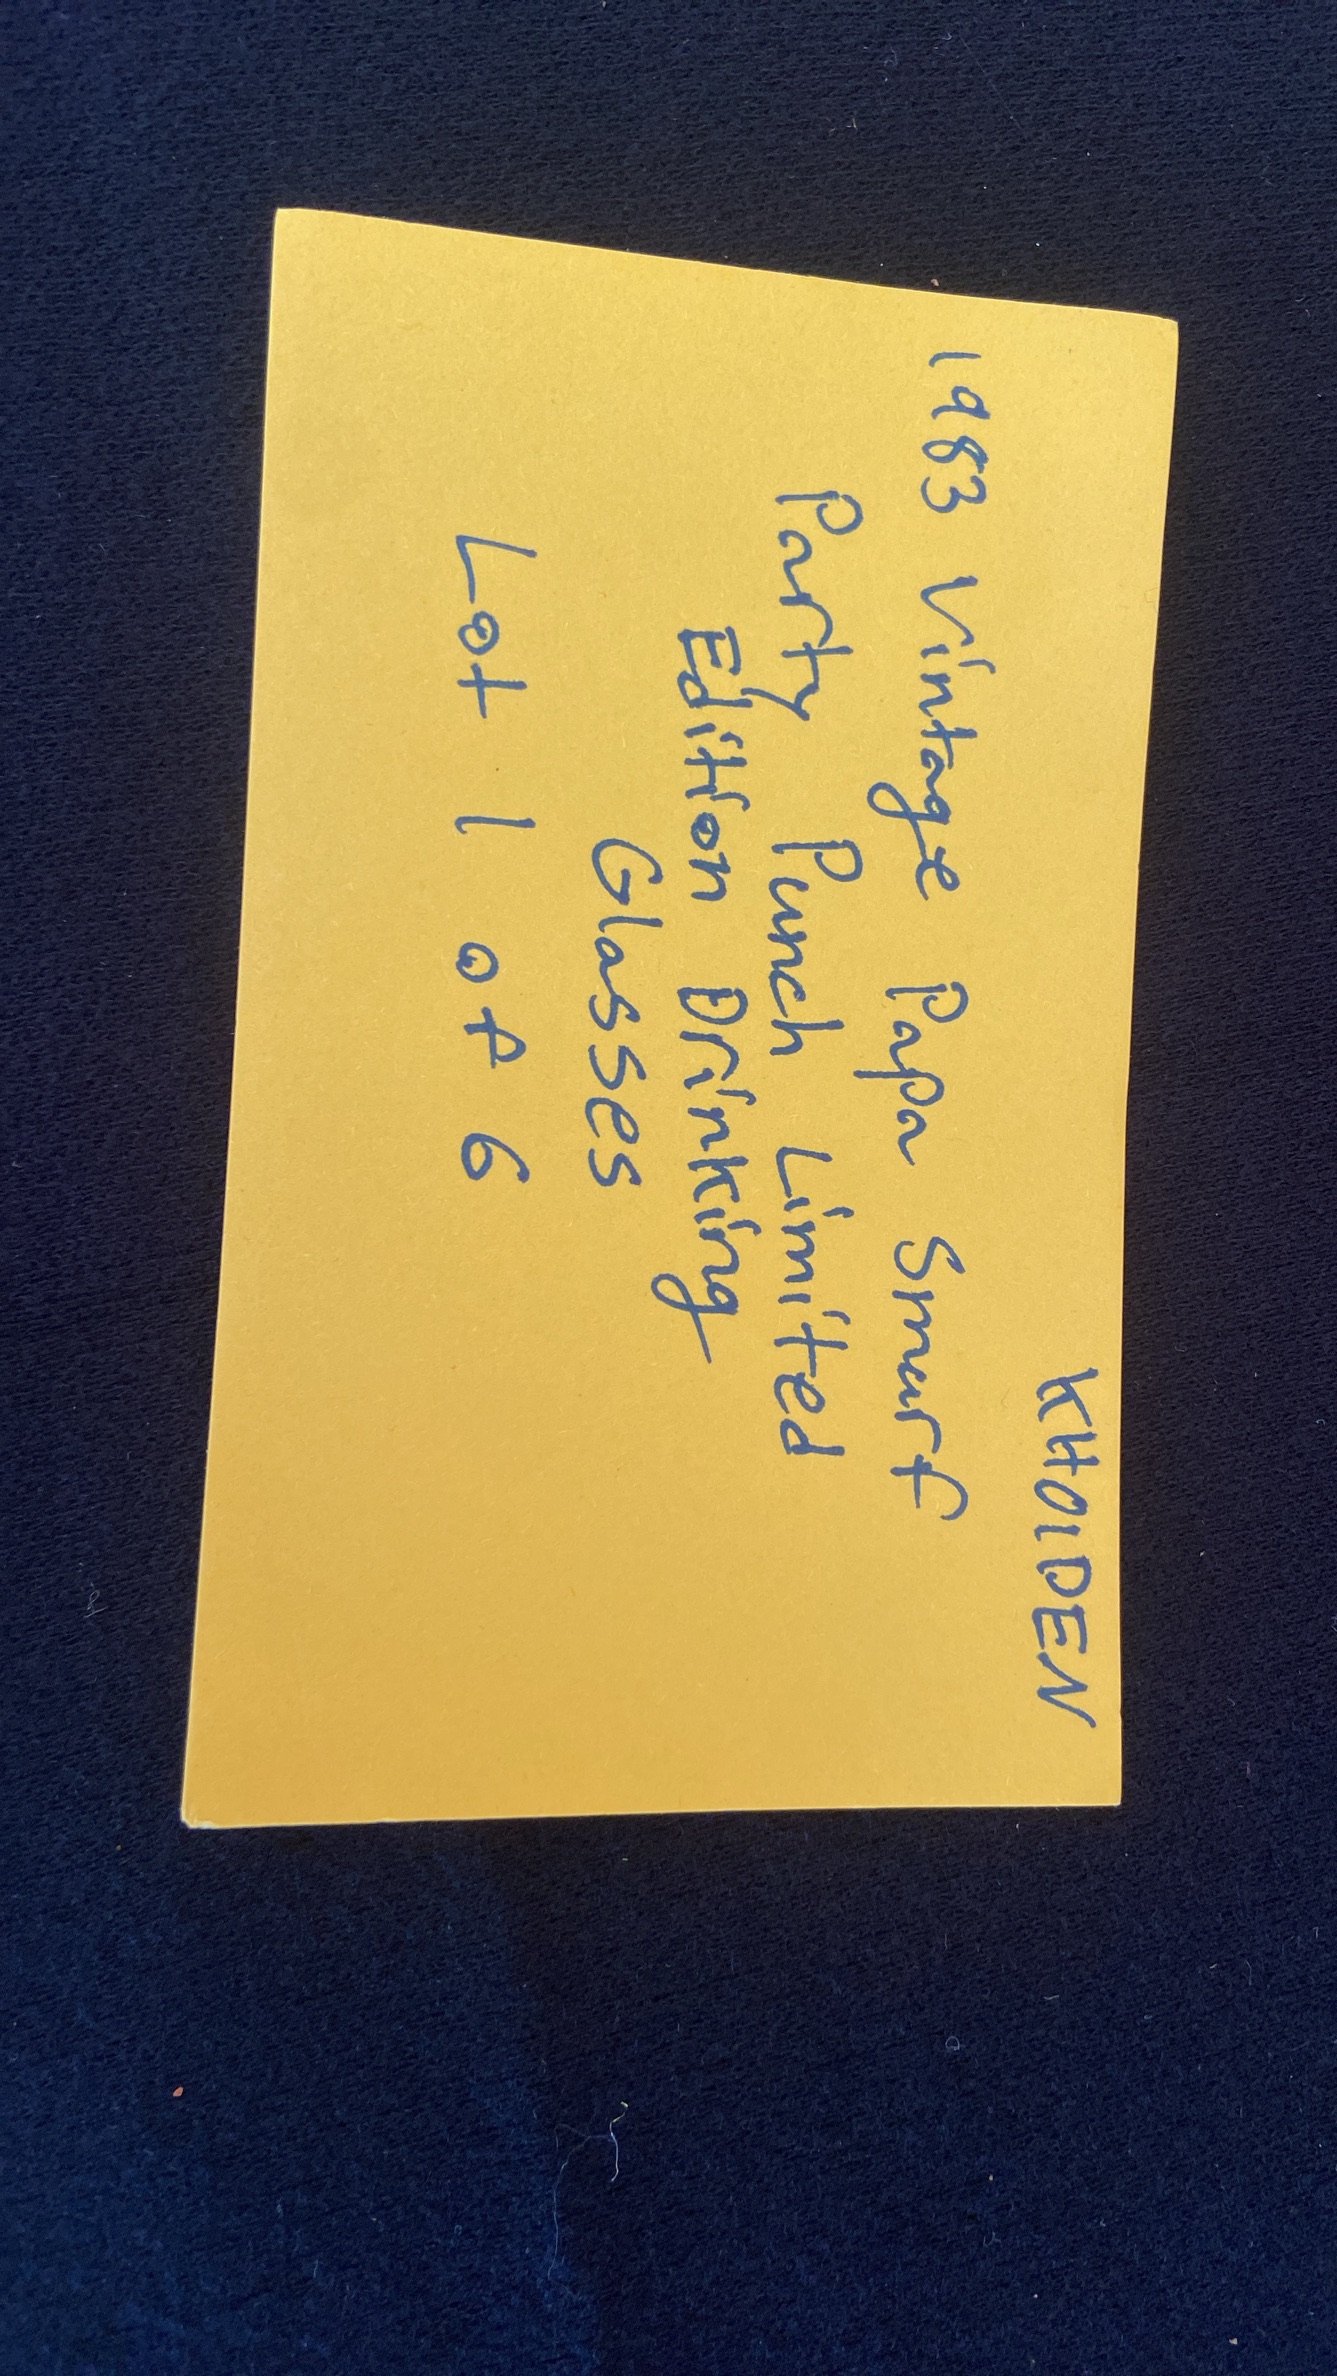 KHOIDEN
1983 Vintage Papa Smurf
Party Punch Limited
Edition Drinking
Glasses
Lot 1 of 6